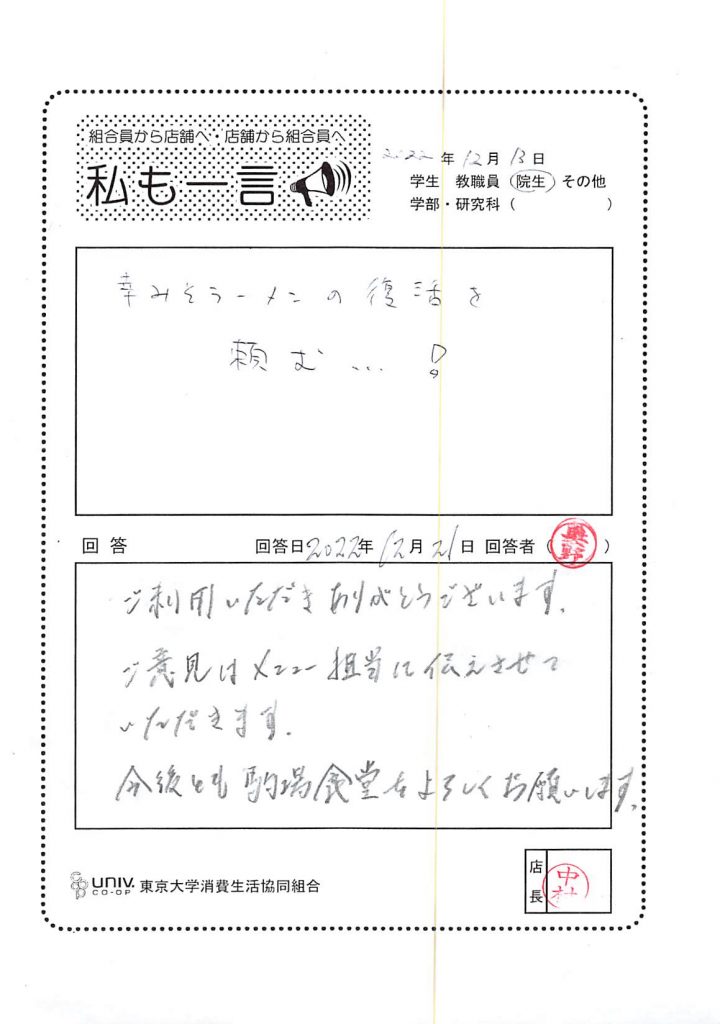 組合員から店舗へ・店舗から組合員へ
私も一言
2022年12月13日
学生 教職員 院生 その他
学部・研究科( )
辛みそラーメンの復活を
頼む…!
回答 回答日2022年12月21日 回答者(奥野)
ご利用いただきありがとうございます。
ご意見はメニュー担当に伝えさせて
いただきます。
今後とも駒場食堂をよろしくお願いします。
UNIV.
CO-OP
東京大学消費生活協同組合
店長
中村